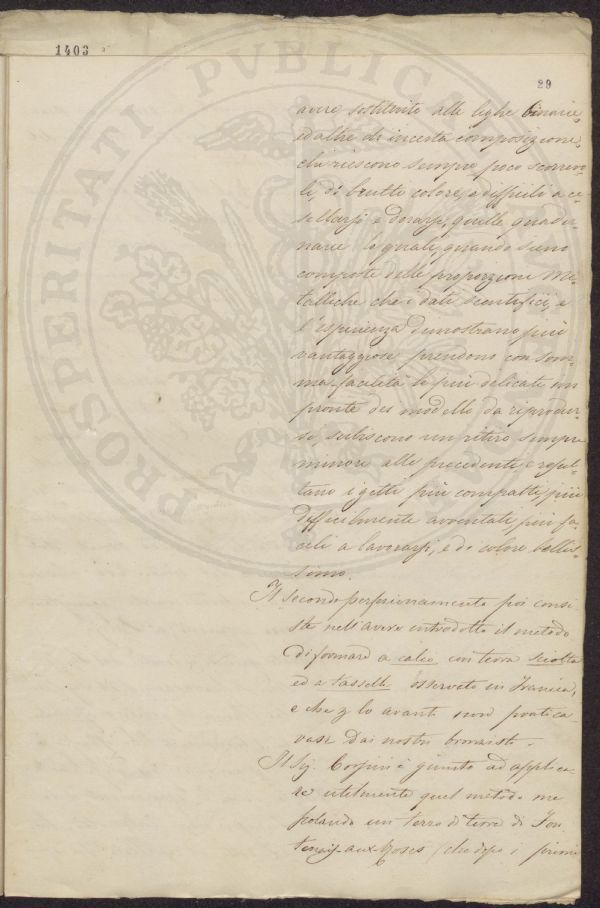 1403
29
avere sostituito alle leghe binarie,
ed altre di incerta composizione,
che riescono sempre poco scorrevo-
li, di brutto colore, e difficili a ce-
sellarsi e dorarsi, quelle quader-
narie le quali, quando sieno
composte delle proporzione Me-
talliche che i dati scientifici, e
l'esperienza dimostrano più
vantaggiose prendono con som-
ma facilità le più delicate im
pronte dei modelli da riprodur-
si, subiscono un ritiro sempre
minore alle precedenti, e resul-
tano i getti più compatti, più
difficilmente avventati, più fa-
cili a lavorarsi, e di colore bellis-
simo.
Il secondo perfezionamento poi consi-
ste nell'avere introdotto il metodo
di formare a calco con terra sciolta
ed a tasselli osservato in Francia,
e che per lo avanti non pratica-
vasi dai nostri bronzisti.
Il Sig. è giunto ad applica-
re utilmente quel metodo me
scolando un terzo di terra di Fon
tenay-aux-Roses (che dopo i primi
PROSPERITATI PUBLICAE